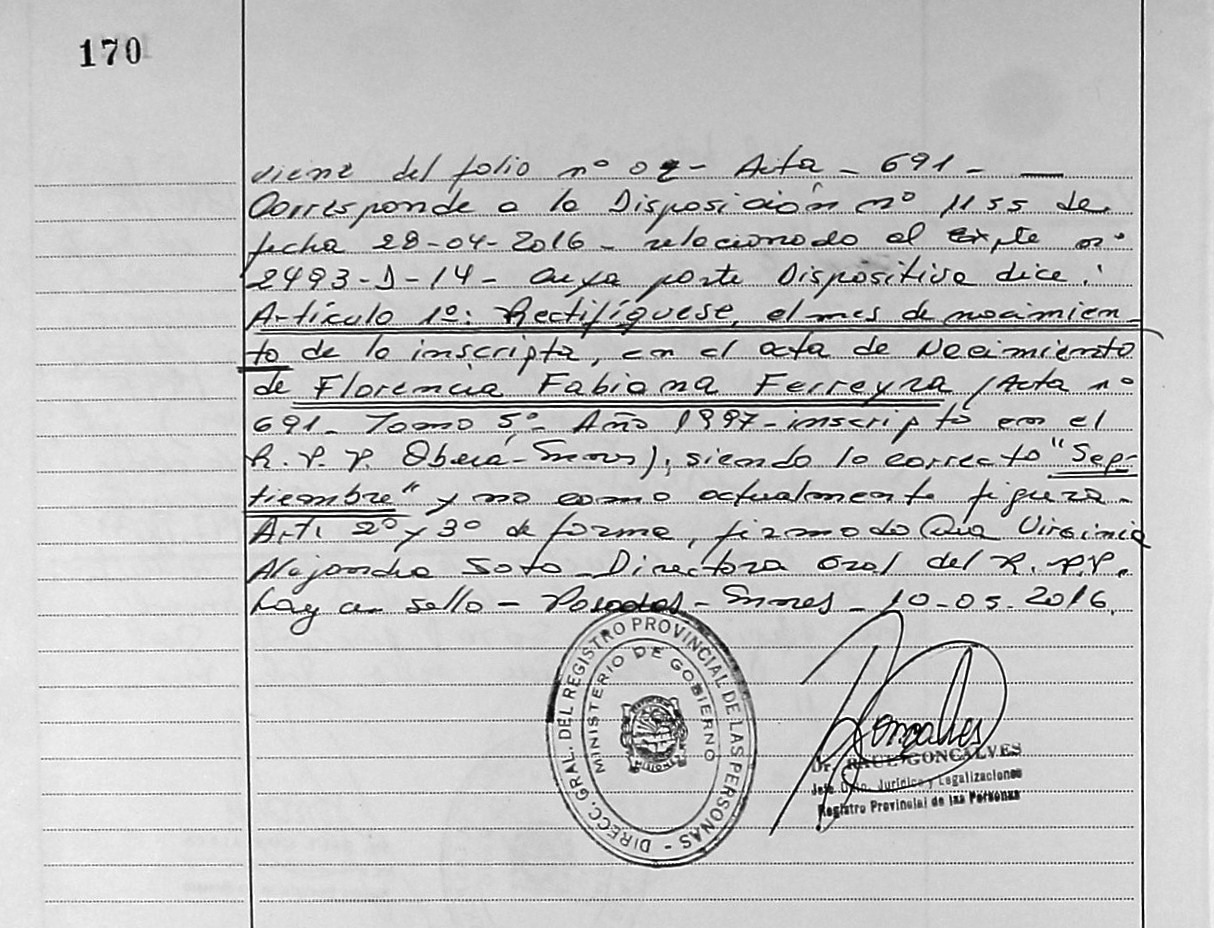 170
viene del folio nº 02- Acta - 691 -
Corresponde a la Disposición nº 1155 de
fecha 28-04-2016- relacionado al Expte nº
2493-D-14- cuya parte Dispositiva dice:
Artículo 1º: Rectifíquese, el mes de nacimien-
to de la inscripta, en el acta de Nacimiento
de Florencia Fabiana Ferreyra (Acta nº
691- Tomo 5º- Año 1997- inscripta en el
R.P.P. Oberá-Mnes), siendo lo correcto "Sep-
tiembre" y no como actualmente figura-
Art. 2º y 3º de forma, firmado Dra Virginia
Alejandra Soto- Directora Gral del R.P.P.
hay un sello- Posadas- Mnes- 10-05-2016.
DIRECC. GRAL. DEL REGISTRO PROVINCIAL DE LAS PERSONAS -
MINISTERIO DE GOBIERNO
MISIONES
Goncalves
Dr. RAUL GONCALVES
Jefe Dpto. Jurídico y Legalizaciones
Registro Provincial de las Personas